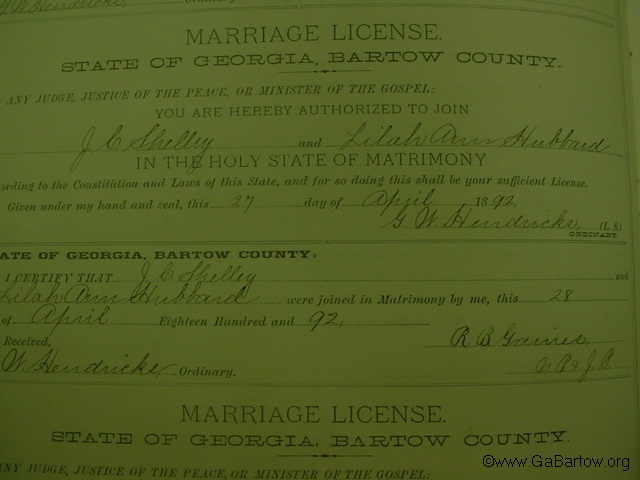 G W Hendricks, Ordinary
MARRIAGE LICENSE.
STATE OF GEORGIA, BARTOW COUNTY.
ANY JUDGE, JUSTICE OF THE PEACE, OR MINISTER OF THE GOSPEL:
YOU ARE HEREBY AUTHORIZED TO JOIN
J C Shelley and Lilah Ann Hubbard
IN THE HOLY STATE OF MATRIMONY
ording to the Constitution and Laws of this State, and for so doing this shall be your sufficient License.
Given under my hand and seal, this 27 day of April 1892,
G. W. Hendricks, (L. S.)
ORDINARY.
ATE OF GEORGIA, BARTOW COUNTY:
I CERTIFY THAT J C Shelley and
Lilah Ann Hubbard were joined in Matrimony by me, this 28
of April Eighteen Hundred and 92,
Received, R B Gaines,
W. Hendricks, Ordinary. J. P.
MARRIAGE LICENSE.
STATE OF GEORGIA, BARTOW COUNTY.
ANY JUDGE, JUSTICE OF THE PEACE, OR MINISTER OF THE GOSPEL:
©www.GaBartow.org